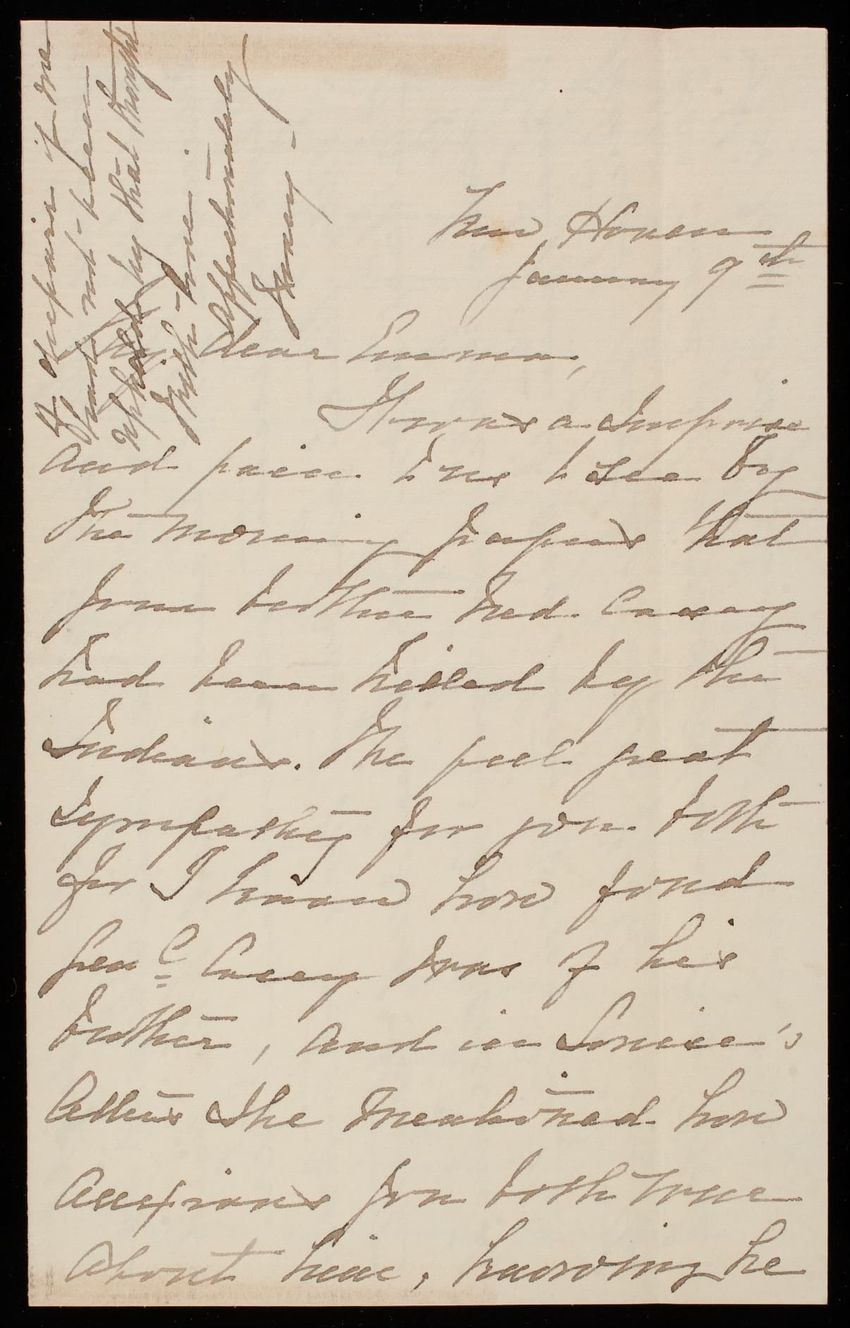 New Haven
January 9th
My dear Emma,
It was a surprise
and pain to us to see by
the morning papers that
your brother Ned Casey
had been killed by the
Indians. We feel great
sympathy for you both
for I know how fond
Gen'l Casey was of his
brother, and in Louise's
letters she mentioned how
anxious you both were
about him, knowing he
of despair if we
had not been
upheld by that thought
With love
Affectionately